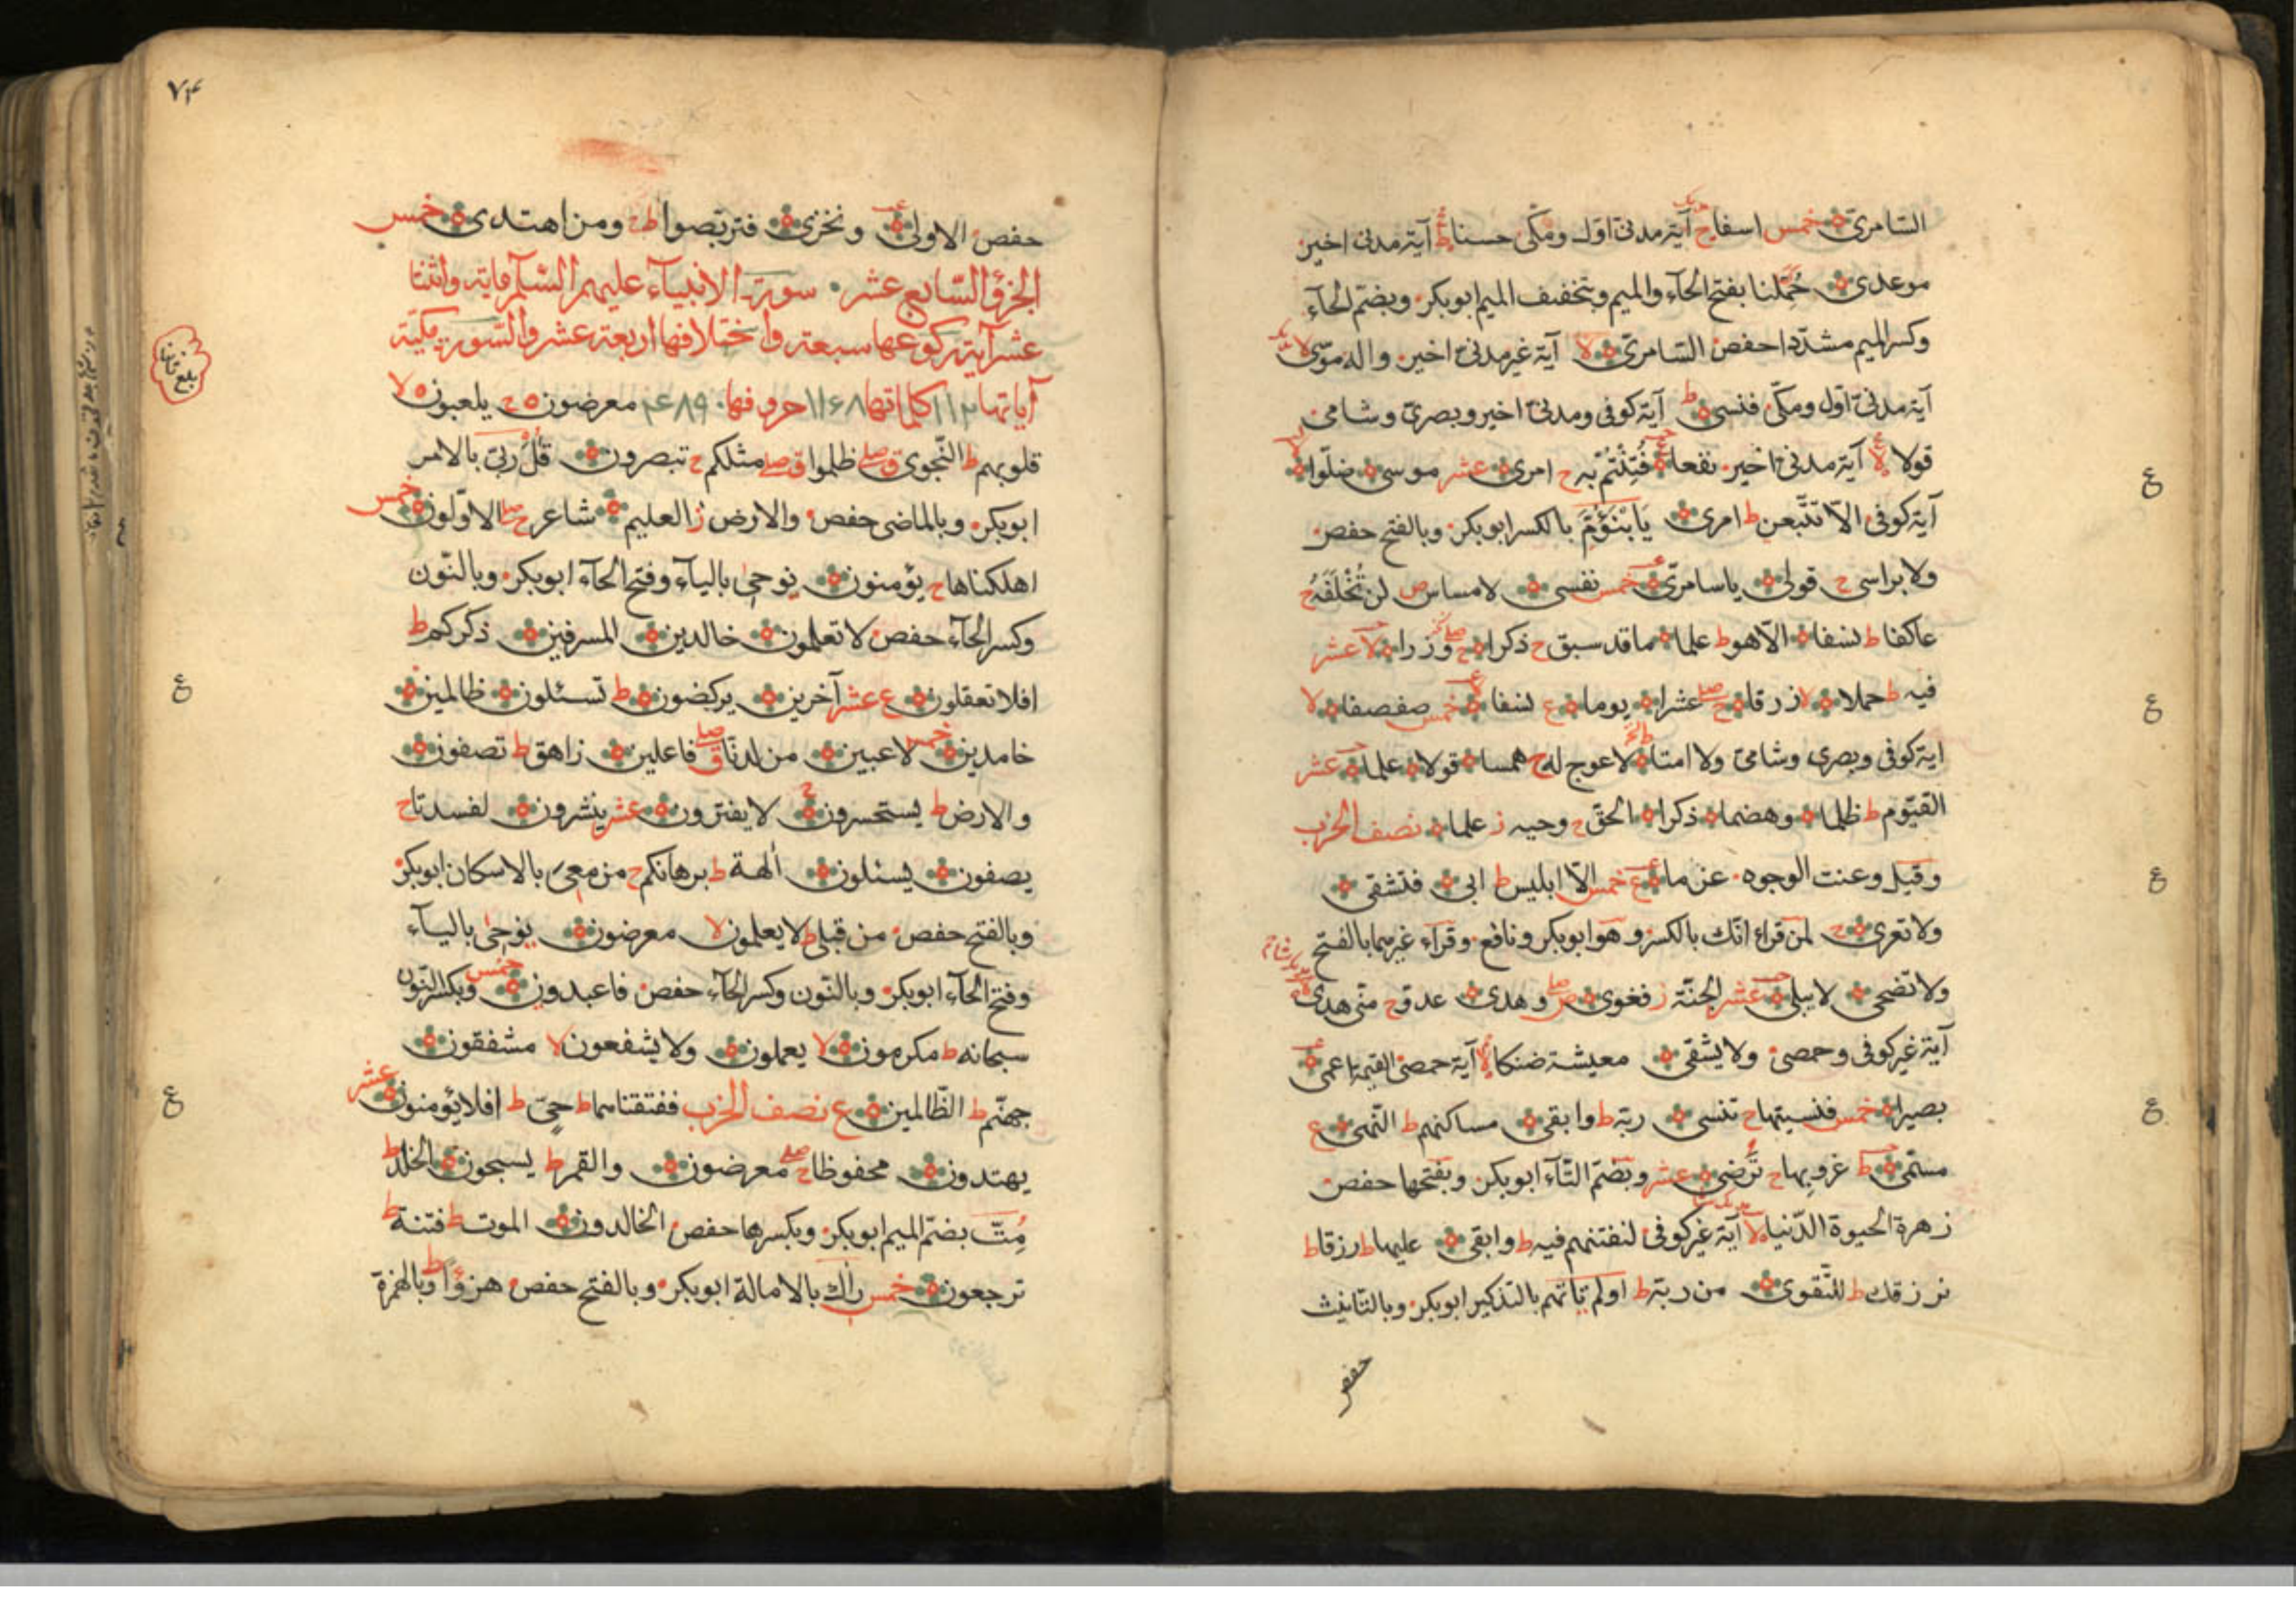 السّامریّ خمس اسفا ج آیة مدنیّ اوّل ومکّی حسنا ط آیة مدنی اخیر
موعدی حُمّلنا بفتح الحآء والمیم وبتخفیف المیم ابوبکر وبضمّ الحآء
وکسر المیم مشدّدا حفص السّامریّ لا آیة غیر مدنیّ اخیر واله موسی
آیة مدنیّ اوّل ومکّی فنسی ط آیة کوفی ومدنیّ اخیر وبصریّ وشامی
قولا لا آیة مدنیّ اخیر نفعا فُتِنْتُمْ بِه ج امری عشر موسی ضلّوا لا
آیة کوفی الّا تتّبعن ط امری یَابْنَؤُمَّ بالکسر ابوبکر وبالفتح حفص
ولا براسی ج قولی یاسامریّ خمس نفسی لا مساس ص لن تُخْلَفَهُ ج
عاکفا ط نسفا الّا هو ط علما ما قد سبق ج ذکرا ج وزرا لا عشر
فیه ط حملا لا زرقا ج عشرا یوما ع نسفا لا خمس صفصفا لا
ایة کوفی وبصری وشامیّ ولا امتا ط لاعوج له ج همسا قولا علما عشر
القیّوم ط ظلما وهضما ذکرا الحقّ ج وحیه ز علما نصف الحزب
وقیل وعنت الوجوه عزما ع خمس الّا ابلیس ط ابی فتشقی
ولا تعری ج لمن قراء انّك بالکسر وهو ابوبکر ونافع وقراء غیرهما بالفتح
ولا تضحی لا یبلی عشر الجنّة ز فغوی ص وهدی عدوّ ج منّی هدی
آیة غیر کوفی وحمصی ولا یشقی معیشة ضنکا لا آیة حمصی القیمة اعمی
بصیرا خمس فنسیتها ج تنسی ربّه ط وابقی مساکنهم ط النّهی ع
مسمّی ط غروبها ج تَُرضی عشر وبضمّ التّآء ابوبکر وبفتحها حفص
زهرة الحیوة الدّنیا لا آیة غیر کوفی لنفتنهم فیه ط وابقی علیها ط رزقا ط
نرزقك ط للتّقوی من ربّه ط اولم تاتهم بالتذکیر ابوبکر وبالتانیث
حفص
ع
ع
ع
ع
٧٤
حفص الاولی ونخزی فتربّصوا ط ج ومن اهتدی خمس
الجزؤ السّابع عشر سورة الانبیآء علیهم السّلم مایة واثنتا
عشر آیة رکوعها سبعة واختلافها اربعة عشر والسّورة مکیّة
آیاتها ١١٢ کلماتها ١١٦٨ حروفها ٤٨٩٠ معرضون ج یلعبون لا
قلوبهم ط النّجوی ق صل ظلموا ق صل مثلکم ج تبصرون قُلْ رَبّی بالامر
ابوبکر وبالماضی حفص والارض ز العلیم شاعر ج صل الاوّلون خمس
اهلکناها ج یؤمنون یوحی بالیآء وفتح الحآء ابوبکر وبالنّون
وکسر الحآء حفص لا تعلمون خالدین المسرفین ذکرکم ط
افلا تعقلون ع عشر آخرین یرکضون ط تسئلون ظالمین
خامدین خمس لاعبین من لدنّا ق صل فاعلین زاهق ط تصفون
والارض ط یستحسرون ج لا یفترون عشر ینشرون لفسدتا ج
یصفون یسئلون آلهة ط برهانکم ج من معی بالاسکان ابوبکر
وبالفتح حفص من قبلی ط لا یعلمون لا معرضون یوحی بالیآء
وفتح الحآء ابوبکر وبالنّون وکسر الحآء حفص فاعبدون خمس وبکسر النّون
سبحانه ط مکرمون لا یعملون ولا یشفعون لا مشفقون
جهنّم ط الظّالمین ع نصف الحزب ففتقناهما ط حیّ ط افلا یؤمنون عشر
یهتدون محفوظا ج صل معرضون والقمر ط یسبحون الخلد ط
مُِتَّ بضمّ المیم ابوبکر وبکسرها حفص الخالدون الموت ط فتنة ط
ترجعون خمس راك بالامالة ابوبکر وبالفتح حفص هزؤا ط وبالهمزة
ع
ع